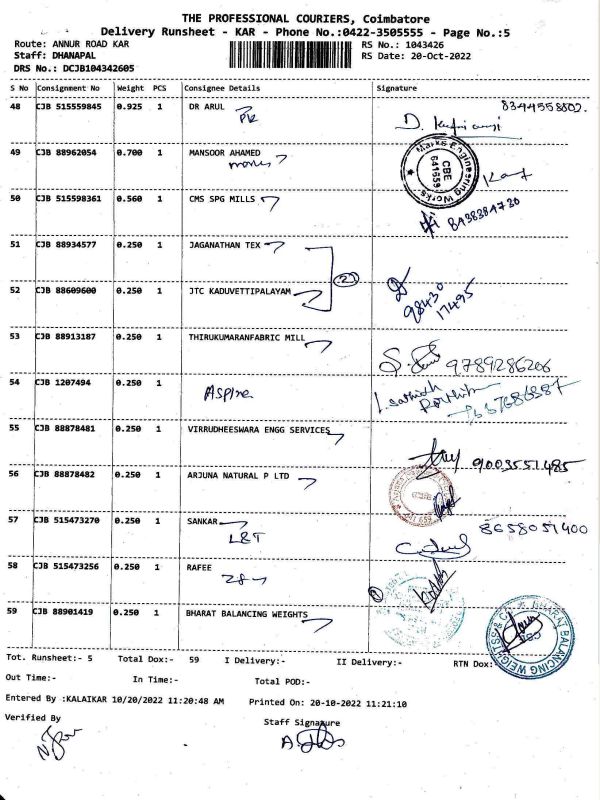 THE PROFESSIONAL COURIERS, Coimbatore
Delivery Runsheet - KAR - Phone No.:0422-3505555 - Page No.:5
Route: ANNUR ROAD KAR
RS No.: 1043426
Staff: DHANAPAL
RS Date: 20-Oct-2022
DRS No.: DCJB104342605
S No Consignment No Weight PCS Consignee Details Signature
48 CJB 515559845 0.925 1 DR ARUL 8344558802.
49 CJB 88962054 0.700 1 MANSOOR AHAMED
Marks Engineering Works
CBE
641659
50 CJB 515598361 0.560 1 CMS SPG MILLS
8438384730
51 CJB 88934577 0.250 1 JAGANATHAN TEX
(2)
52 CJB 88609600 0.250 1 JTC KADUVETTIPALAYAM
98430
17495
53 CJB 88913187 0.250 1 THIRUKUMARANFABRIC MILL
9789286206
54 CJB 1207494 0.250 1
Aspire
55 CJB 88878481 0.250 1 VIRRUDHEESWARA ENGG SERVICES
9003551485
56 CJB 88878482 0.250 1 ARJUNA NATURAL P LTD
57 CJB 515473270 0.250 1 SANKAR
L&T
8658051400
58 CJB 515473256 0.250 1 RAFEE
59 CJB 88901419 0.250 1 BHARAT BALANCING WEIGHTS
Tot. Runsheet:- 5 Total Dox:- 59 I Delivery:- II Delivery:- RTN Dox:
Out Time:- In Time:- Total POD:-
Entered By :KALAIKAR 10/20/2022 11:20:48 AM Printed On: 20-10-2022 11:21:10
Verified By Staff Signature